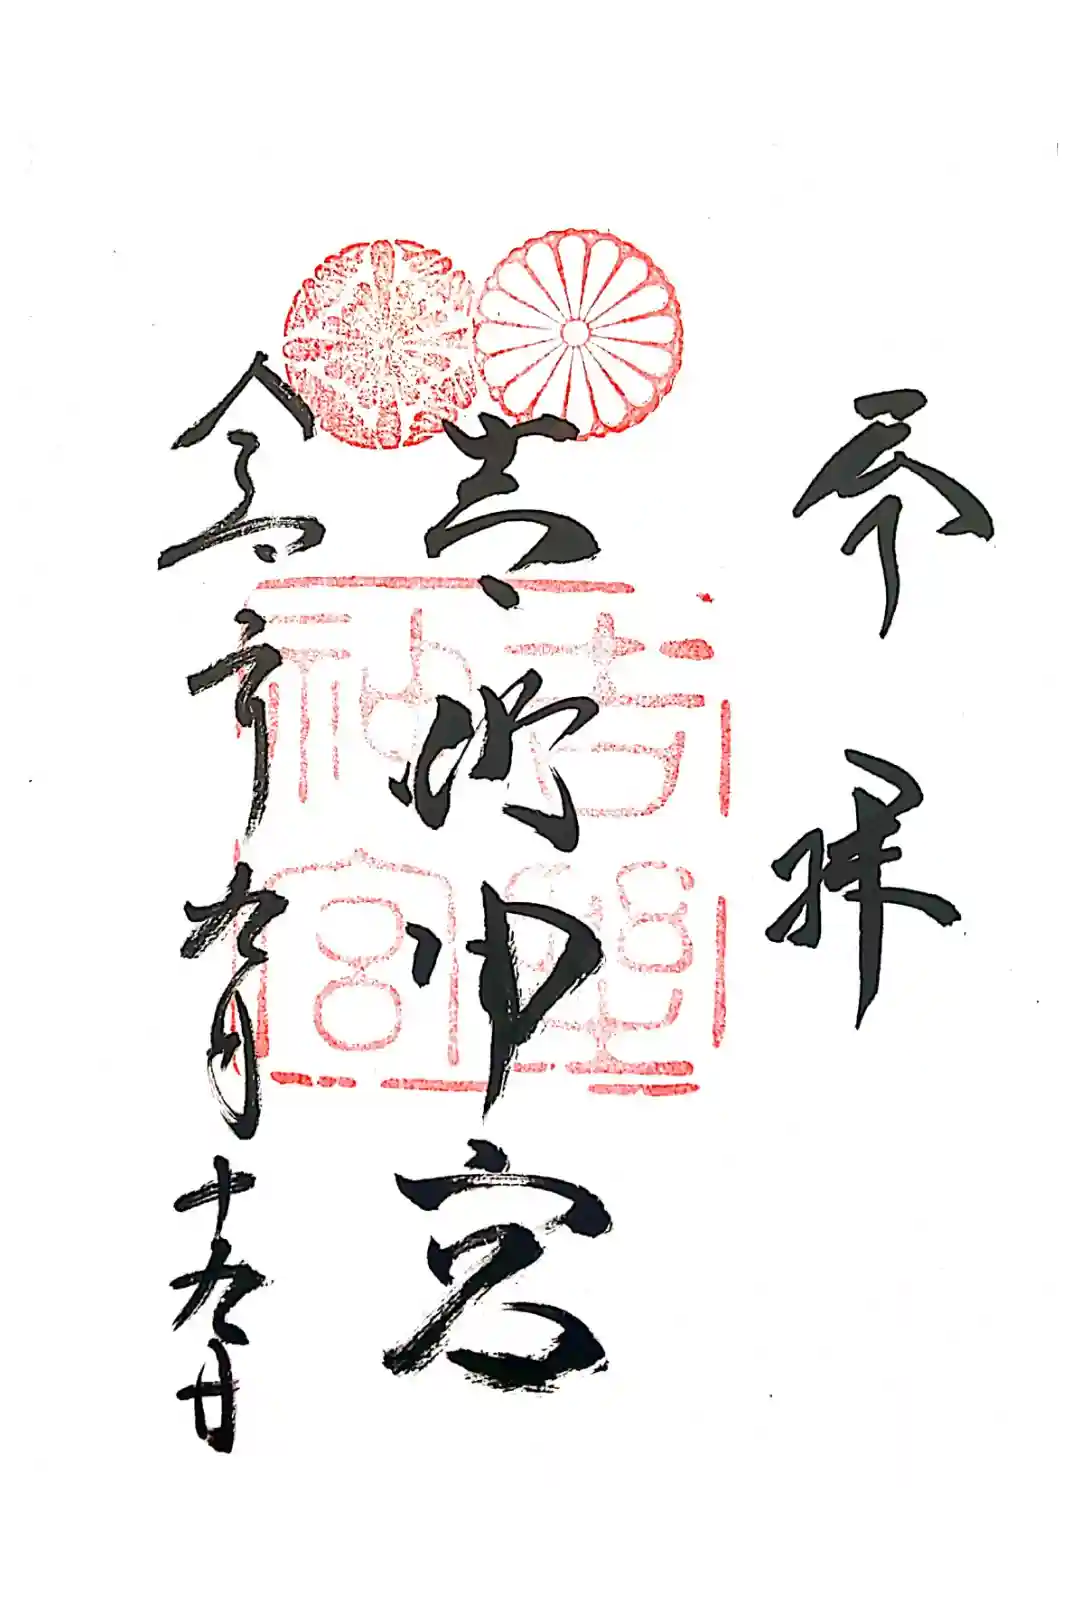 奉拝
吉野神宮
令 年九月十九日
吉野
神宮